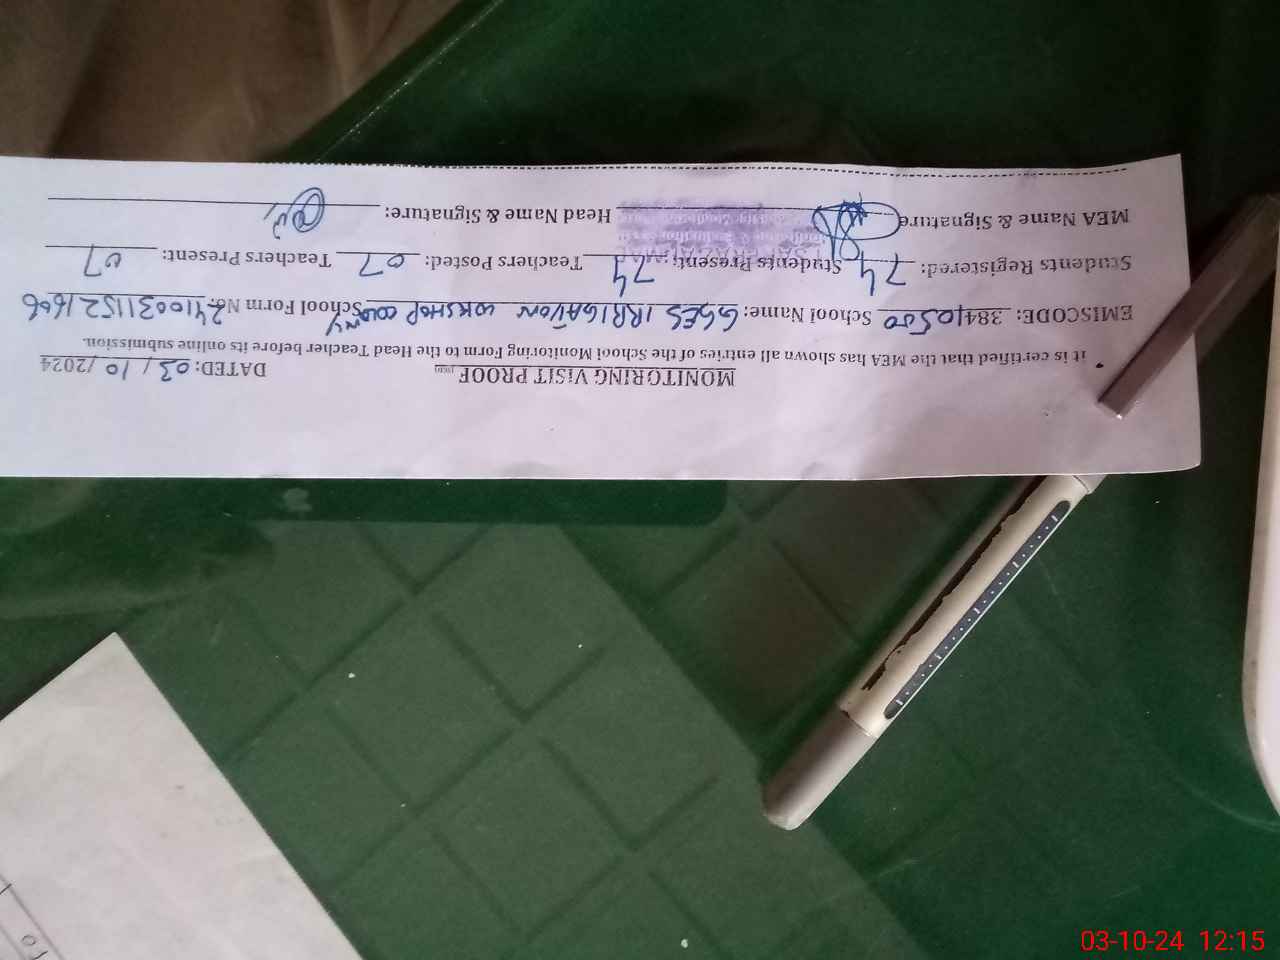 MONITORING VISIT PROOF DATED: 03/10/2024
• it is certified that the MEA has shown all entries of the School Monitoring Form to the Head Teacher before its online submission.
EMISCODE: 38410500 School Name: GGES IRRIGATION WORKSHOP COLONY School Form No: 24100311521606
Students Registered: 74 Students Present: 74 Teachers Posted: 07 Teachers Present: 07
MEA Name & Signature Head Name & Signature:
03-10-24 12:15